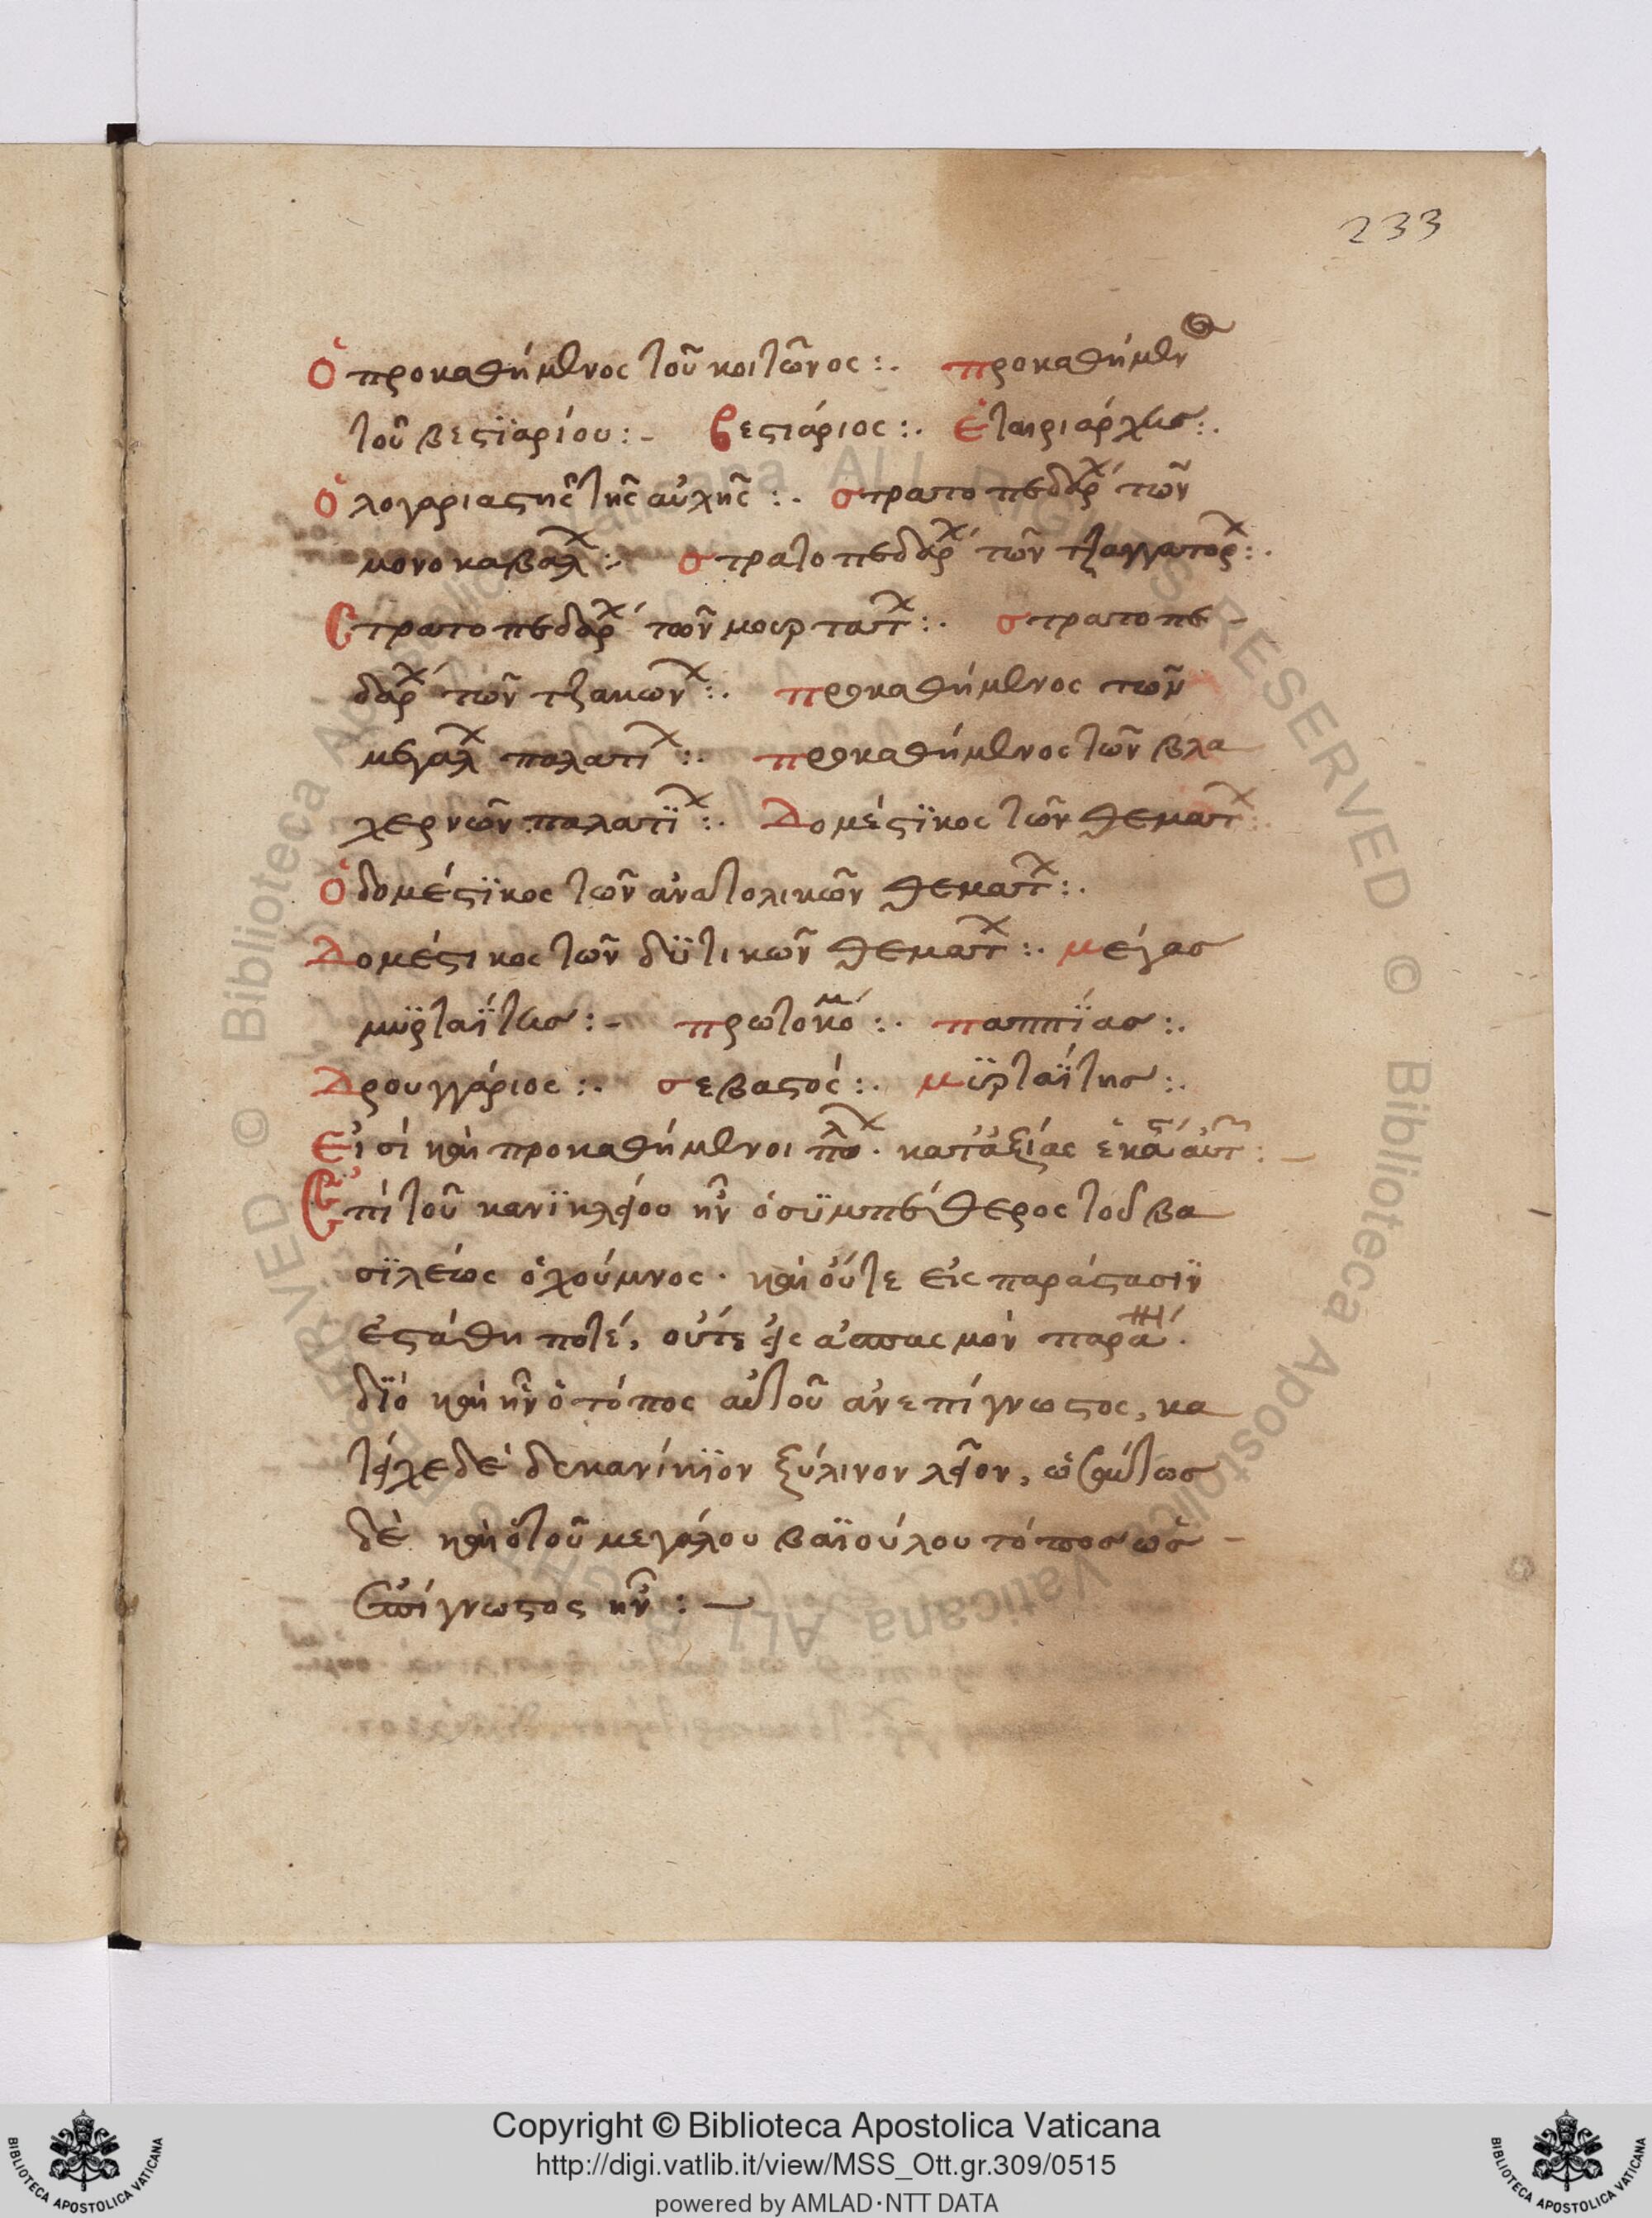 233
Ὁ προκαθήμενος τοῦ κοιτῶνος :. προκαθήμεν
τοῦ βεστϊαρίου :- βεστιάριος :. ἑταιριάρχης :.
Ὁ λογαριαστὴς τῆς αὐλῆς :. στρατοπεδάρχ τῶν
μονοκαβαλλ :. στρατοπεδάρχ τῶν τζαγγατορ :.
Στρατοπεδάρχ τῶν μουρτατ :. στρατοπε -
δάρχ τῶν τζακων :. προκαθήμενος τῶν
μεγαλ παλατι :. προκαθήμενος τῶν βλα
χερνῶν παλατϊ :. Δομέστϊκος τῶν θεματ :.
Ὁ δομέστϊκος τῶν ἀνατολικῶν θεματ :.
Δομέστικος τῶν δϋτικῶν θεματ :. μέγας
μϋρταΐτης :- πρωτοκο :. παππίας :.
Δρουγγάριος :. σεβαστός :. μϋρταΐτης :.
Εἰσὶ καὶ προκαθήμενοι πολ · κατ' ἀξίας ἑκάστ αὐτ :
Ἐπὶ τοῦ κανϊκλείου ἦν ὁ σϋμπέθερος τοῦ βα
σϊλέως ὁ χούμνος · καὶ οὔτε εἰς παράστασϊν
ἐστάθη ποτέ, οὔτε εἰς ἀσπασμὸν παρα ·
δϊὸ καὶ ἦν ὁ τόπος αὐτοῦ ἀνεπίγνωστος, κα
τεῖχε δὲ δεκανίκϊον ξύλινον λεῖον, ὡσαύτως
δὲ καὶ ὁ τοῦ μεγάλου βαϊούλου τόπος
ἐπίγνωστος ἦν :-
Copyright © Biblioteca Apostolica Vaticana
http://digi.vatlib.it/view/MSS_Ott.gr.309/0515
powered by AMLAD·NTT DATA
BIBLIOTECA APOSTOLICA VATICANA
BIBLIOTECA APOSTOLICA VATICANA